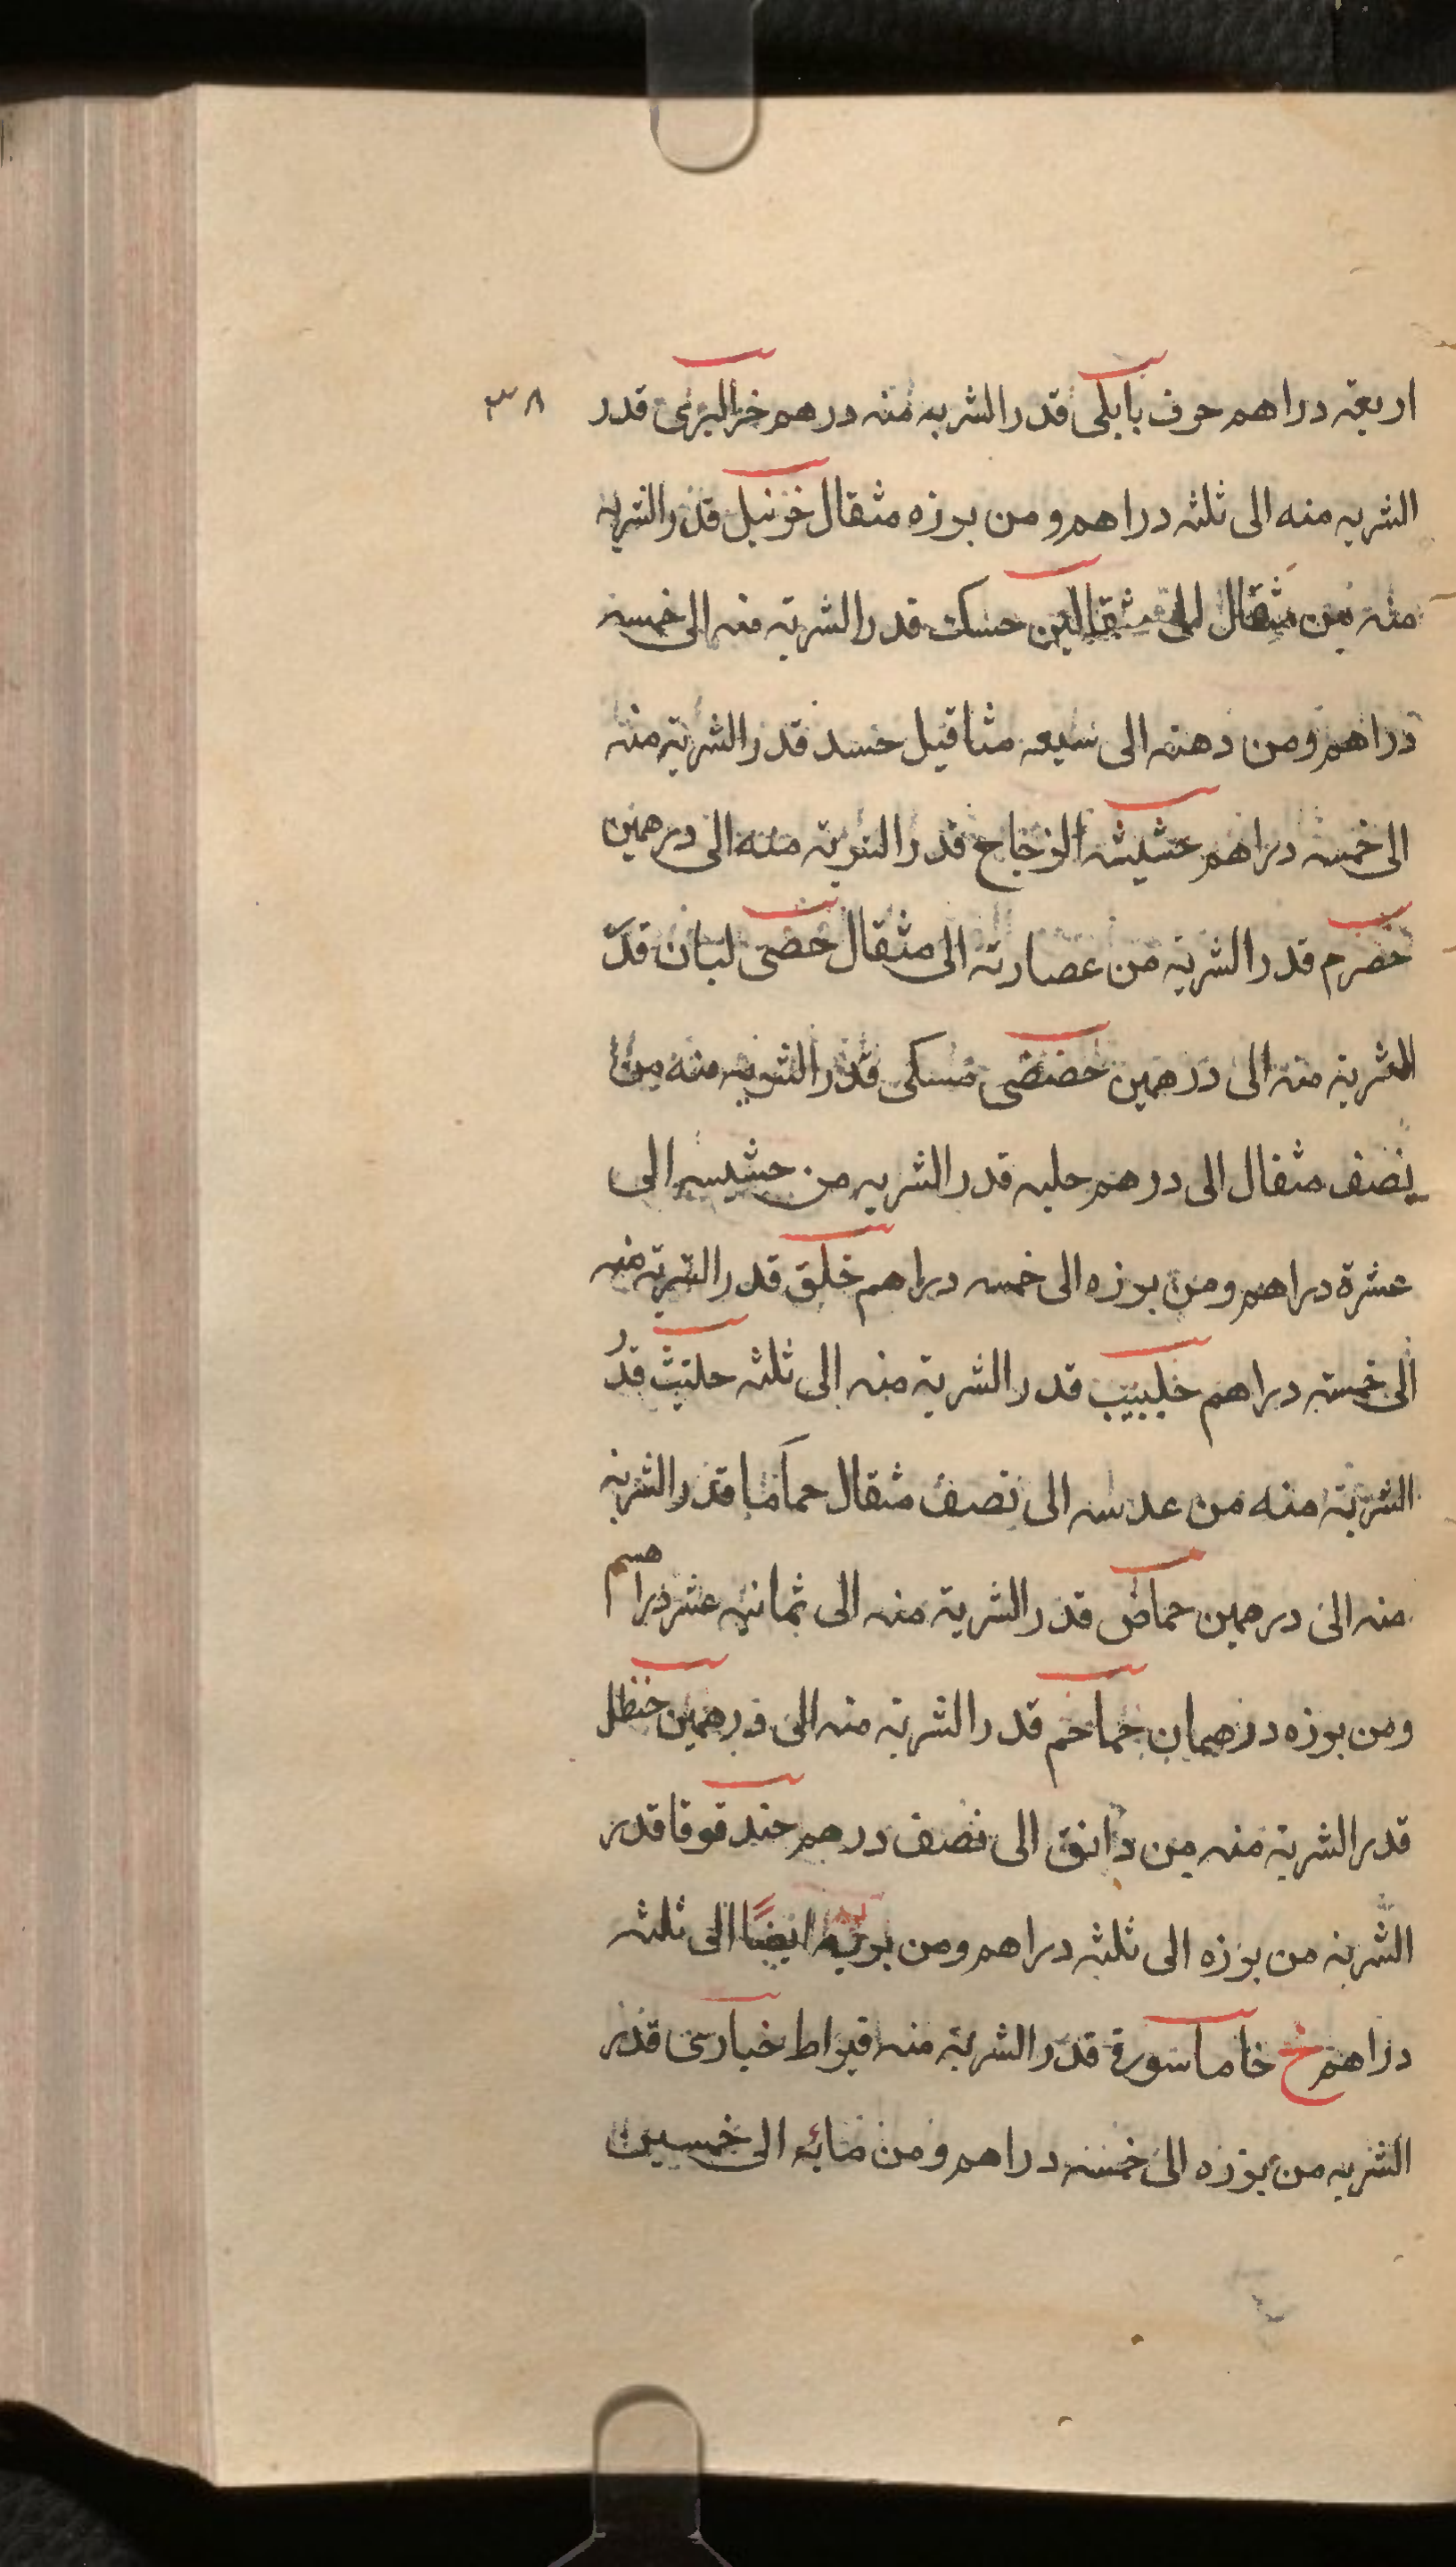 اربعة دراهم حرف بابلى قدر الشربه منه درهم خرالبرى قدر
٣٨
الشربه منه الى ثلثه دراهم ومن بوزه مثقال خرنبل قدر الشربه
منه من مثقال الى مثقالين حسك قدر الشربة منه الى خمسه
دراهم ومن دهنه الى سبعه مثاقيل حسد قدر الشربة منه
الى خمسه دراهم حشيشه الزجاج قدر الشربة منه الى درهمين
حصرم قدر الشربة من عصارته الى مثقال حصى لبان قدر
الشربة منه الى درهمين حضض مسكى قدر الشربه منه من
نصف مثقال الى درهم حلبه قدر الشربه من حشيشه الى
عشرة دراهم ومن بوزه الى خمسه دراهم حلق قدر الشربة منه
الى خمسة دراهم حلبيب قدر الشربة منه الى ثلثه حلتيث قدر
الشربة منه من عدسه الى نصف مثقال حماما قدر الشربة
منه الى درهمين حماض قدر الشربة منه الى ثمانيه عشر دراهم
ومن بوزه درهمان حماحم قدر الشربة منه الى درهمين حنظل
قدر الشربة منه من دانق الى نصف درهم حندقوقا قدر
الشربه من بوزه الى ثلثه دراهم ومن بريه ايضًا الى ثلثه
دراهم خ خاماسورة قدر الشربة منه قيراط خبازى قدر
الشربه من بوزه الى خمسه دراهم ومن مائه الى خمسين